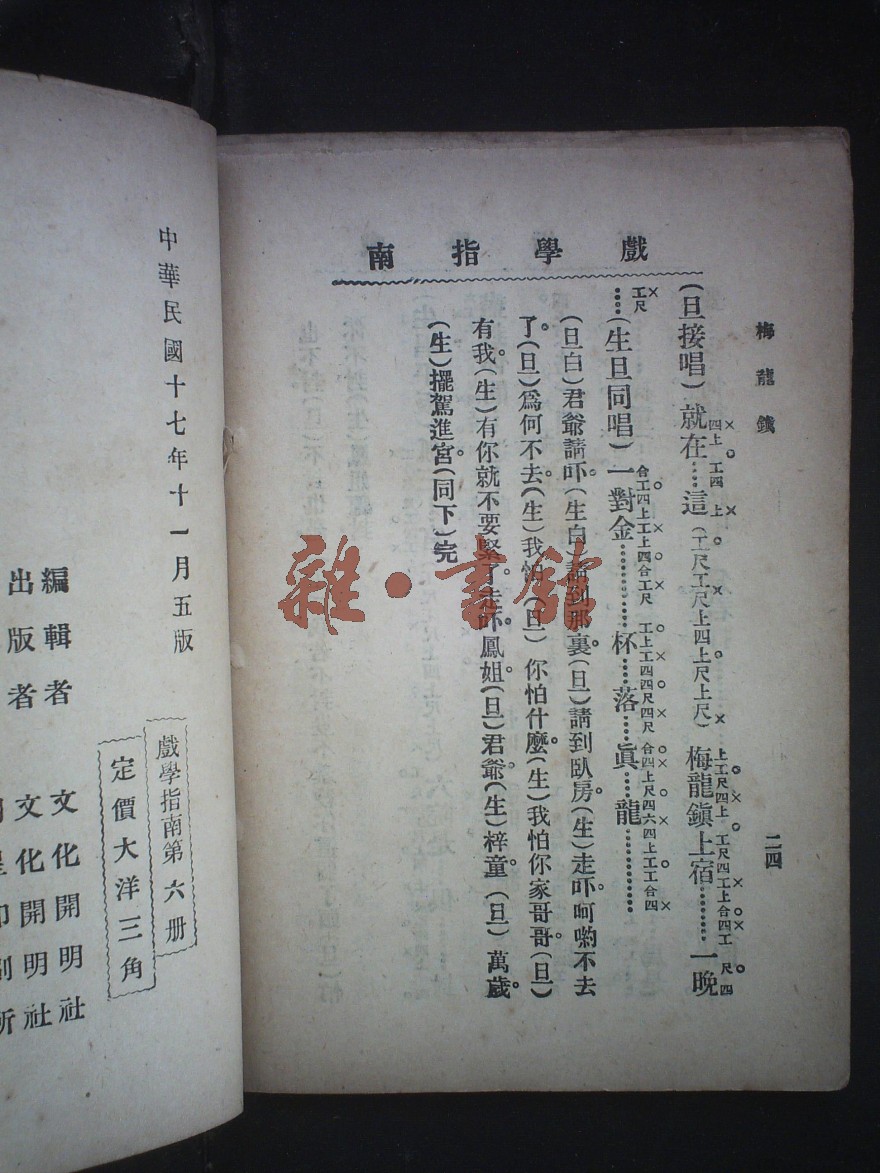 戲學指南
梅龍鎮
二四
(旦接唱)就在……這(工尺工尺上四上尺上尺)梅龍鎭上宿………一晚
……(生旦同唱)一對金………杯……落……眞……龍…………
(旦白)君爺請吓。(生白)請到那裏(旦)請到臥房。(生)走吓。呵喲不去
了。(旦)爲何不去(生)我怕(旦)你怕什麼。(生)我怕你家哥哥。(旦)
有我。(生)有你就不要緊了。走吓。鳳姐。(旦)君爺。(生)梓童。(旦)萬歲。
(生)擺駕進宮。(同下)完
中華民國十七年十一月五版
戲學指南第六册
定價大洋三角
編輯者 文化開明社
出版者 文化開明社
印刷所
雜·書館